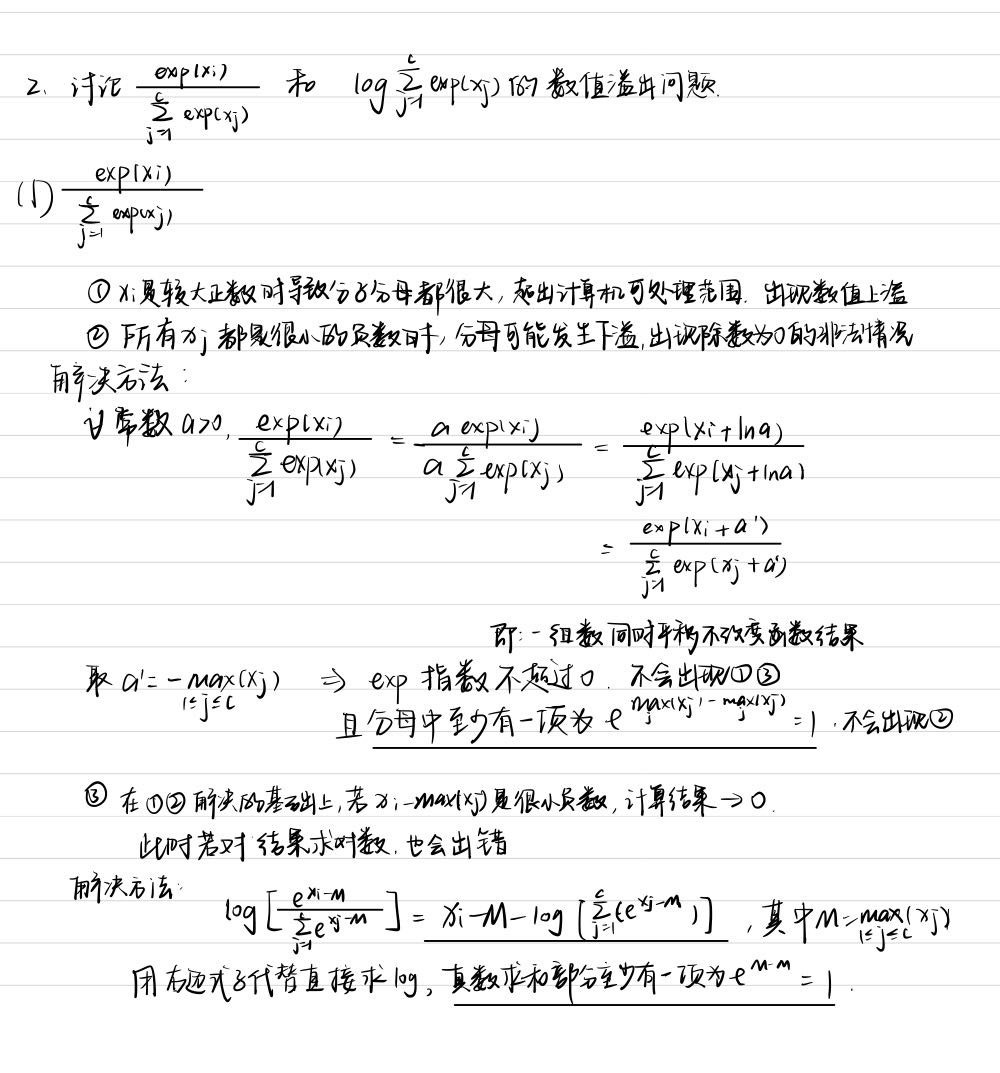 2. 讨论 exp(xi) / Σ_{j=1}^{c} exp(xj) 和 log Σ_{j=1}^{c} exp(xj) 的数值溢出问题.
(1) exp(xi) / Σ_{j=1}^{c} exp(xj)
① xi是较大正数时导致分子分母都很大, 超出计算机可处理范围. 出现数值上溢
② 所有xj都是很小的负数时, 分母可能发生下溢, 出现除数为0的非法情况
解决方法:
设常数 a>0, exp(xi) / Σ_{j=1}^{c} exp(xj) = a exp(xi) / a Σ_{j=1}^{c} exp(xj) = exp(xi+lna) / Σ_{j=1}^{c} exp(xj+lna)
= exp(xi+a') / Σ_{j=1}^{c} exp(xj+a')
即: 一组数同时平移不改变函数结果
取 a' = -max_{1≤j≤c}(xj) ⇒ exp 指数不超过0. 不会出现①③
且分母中至少有一项为 e^{max_j(xj) - max_j(xj)} = 1. 不会出现②
③ 在①②解决的基础上, 若 xi-max(xj)是很小负数, 计算结果→0.
此时若对结果求对数, 也会出错
解决方法:
log [ e^{xi-M} / Σ_{j=1}^{c} e^{xj-M} ] = xi-M-log [ Σ_{j=1}^{c} (e^{xj-M}) ] , 其中M=max_{1≤j≤c}(xj)
用右边式子代替直接求log, 真数求和部分至少有一项为e^{M-M} = 1.